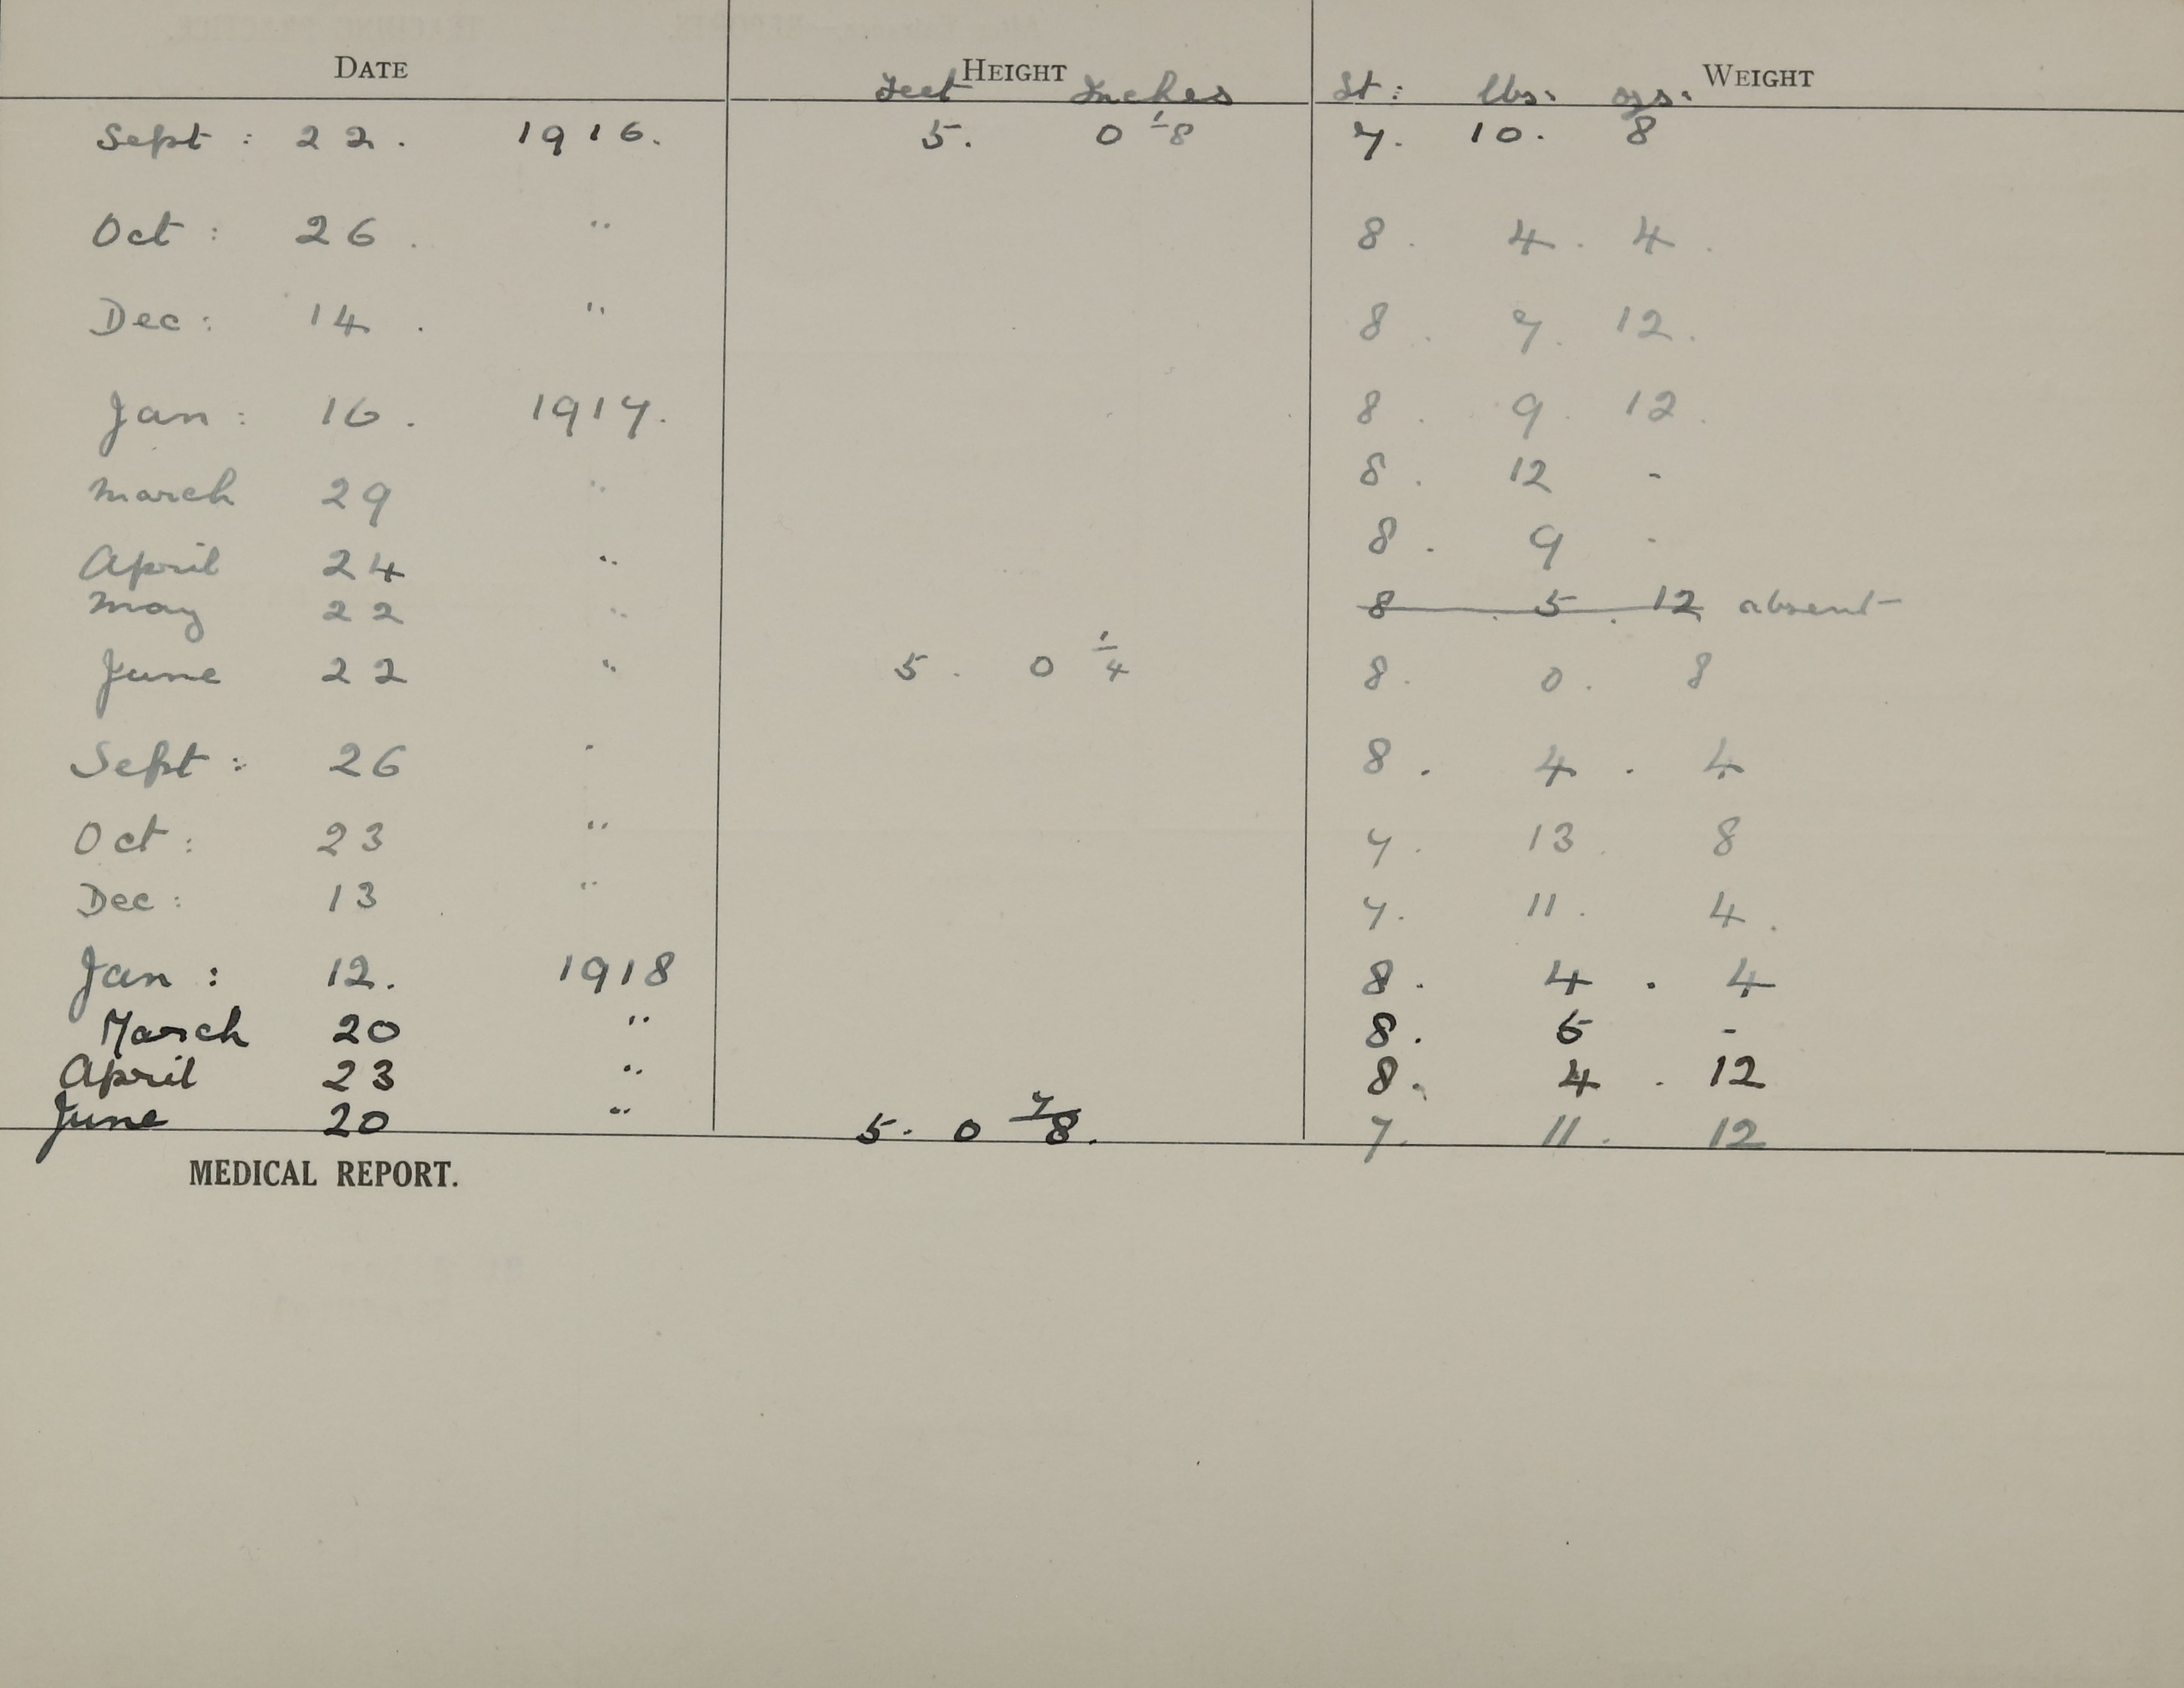 DATE HEIGHT WEIGHT
Feet Inches St: lbs. ozs.
Sept: 22. 1916. 5. 0 1/8 7. 10. 8
Oct: 26. " 8. 4. 4.
Dec: 14. " 8. 7. 12.
Jan: 16. 1917. 8. 9. 12.
March 29 " 8. 12 -
April 24 " 8. 9 -
May 22 " 8. 5. 12 absent
June 22 " 5. 0 1/4 8. 0. 8
Sept: 26 " 8. 4. 4
Oct: 23 " 7. 13. 8
Dec: 13 " 7. 11. 4.
Jan: 12. 1918 8. 4. 4
March 20 " 8. 5 -
April 23 " 8. 4. 12
June 20 " 5. 0 7/8. 7. 11. 12
MEDICAL REPORT.